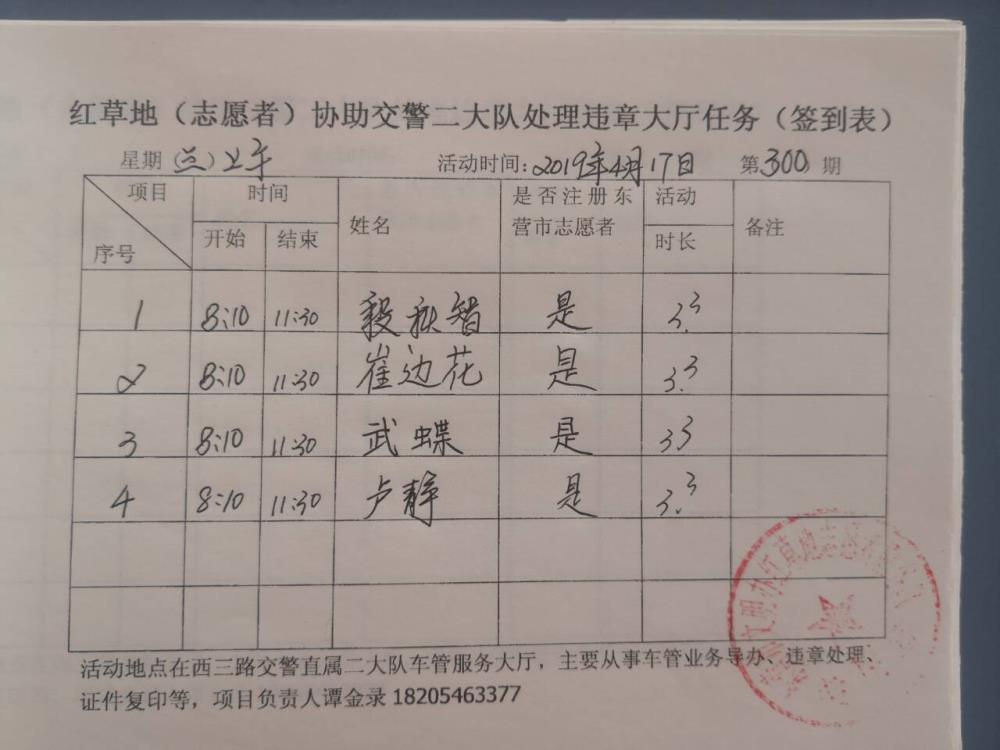 红草地（志愿者）协助交警二大队处理违章大厅任务（签到表）
星期（三）上午 活动时间：2019年4月17日 第300期
项目 时间 姓名 是否注册东营市志愿者 活动时长 备注
序号 开始 结束
1 8:10 11:30 是 3.3
2 8:10 11:30 崔边花 是 3.3
3 8:10 11:30 武蝶 是 33
4 8:10 11:30 卢静 是 3.3
活动地点在西三路交警直属二大队车管服务大厅，主要从事车管业务导办、违章处理、
证件复印等，项目负责人谭金录 18205463377
文明办红草地志愿